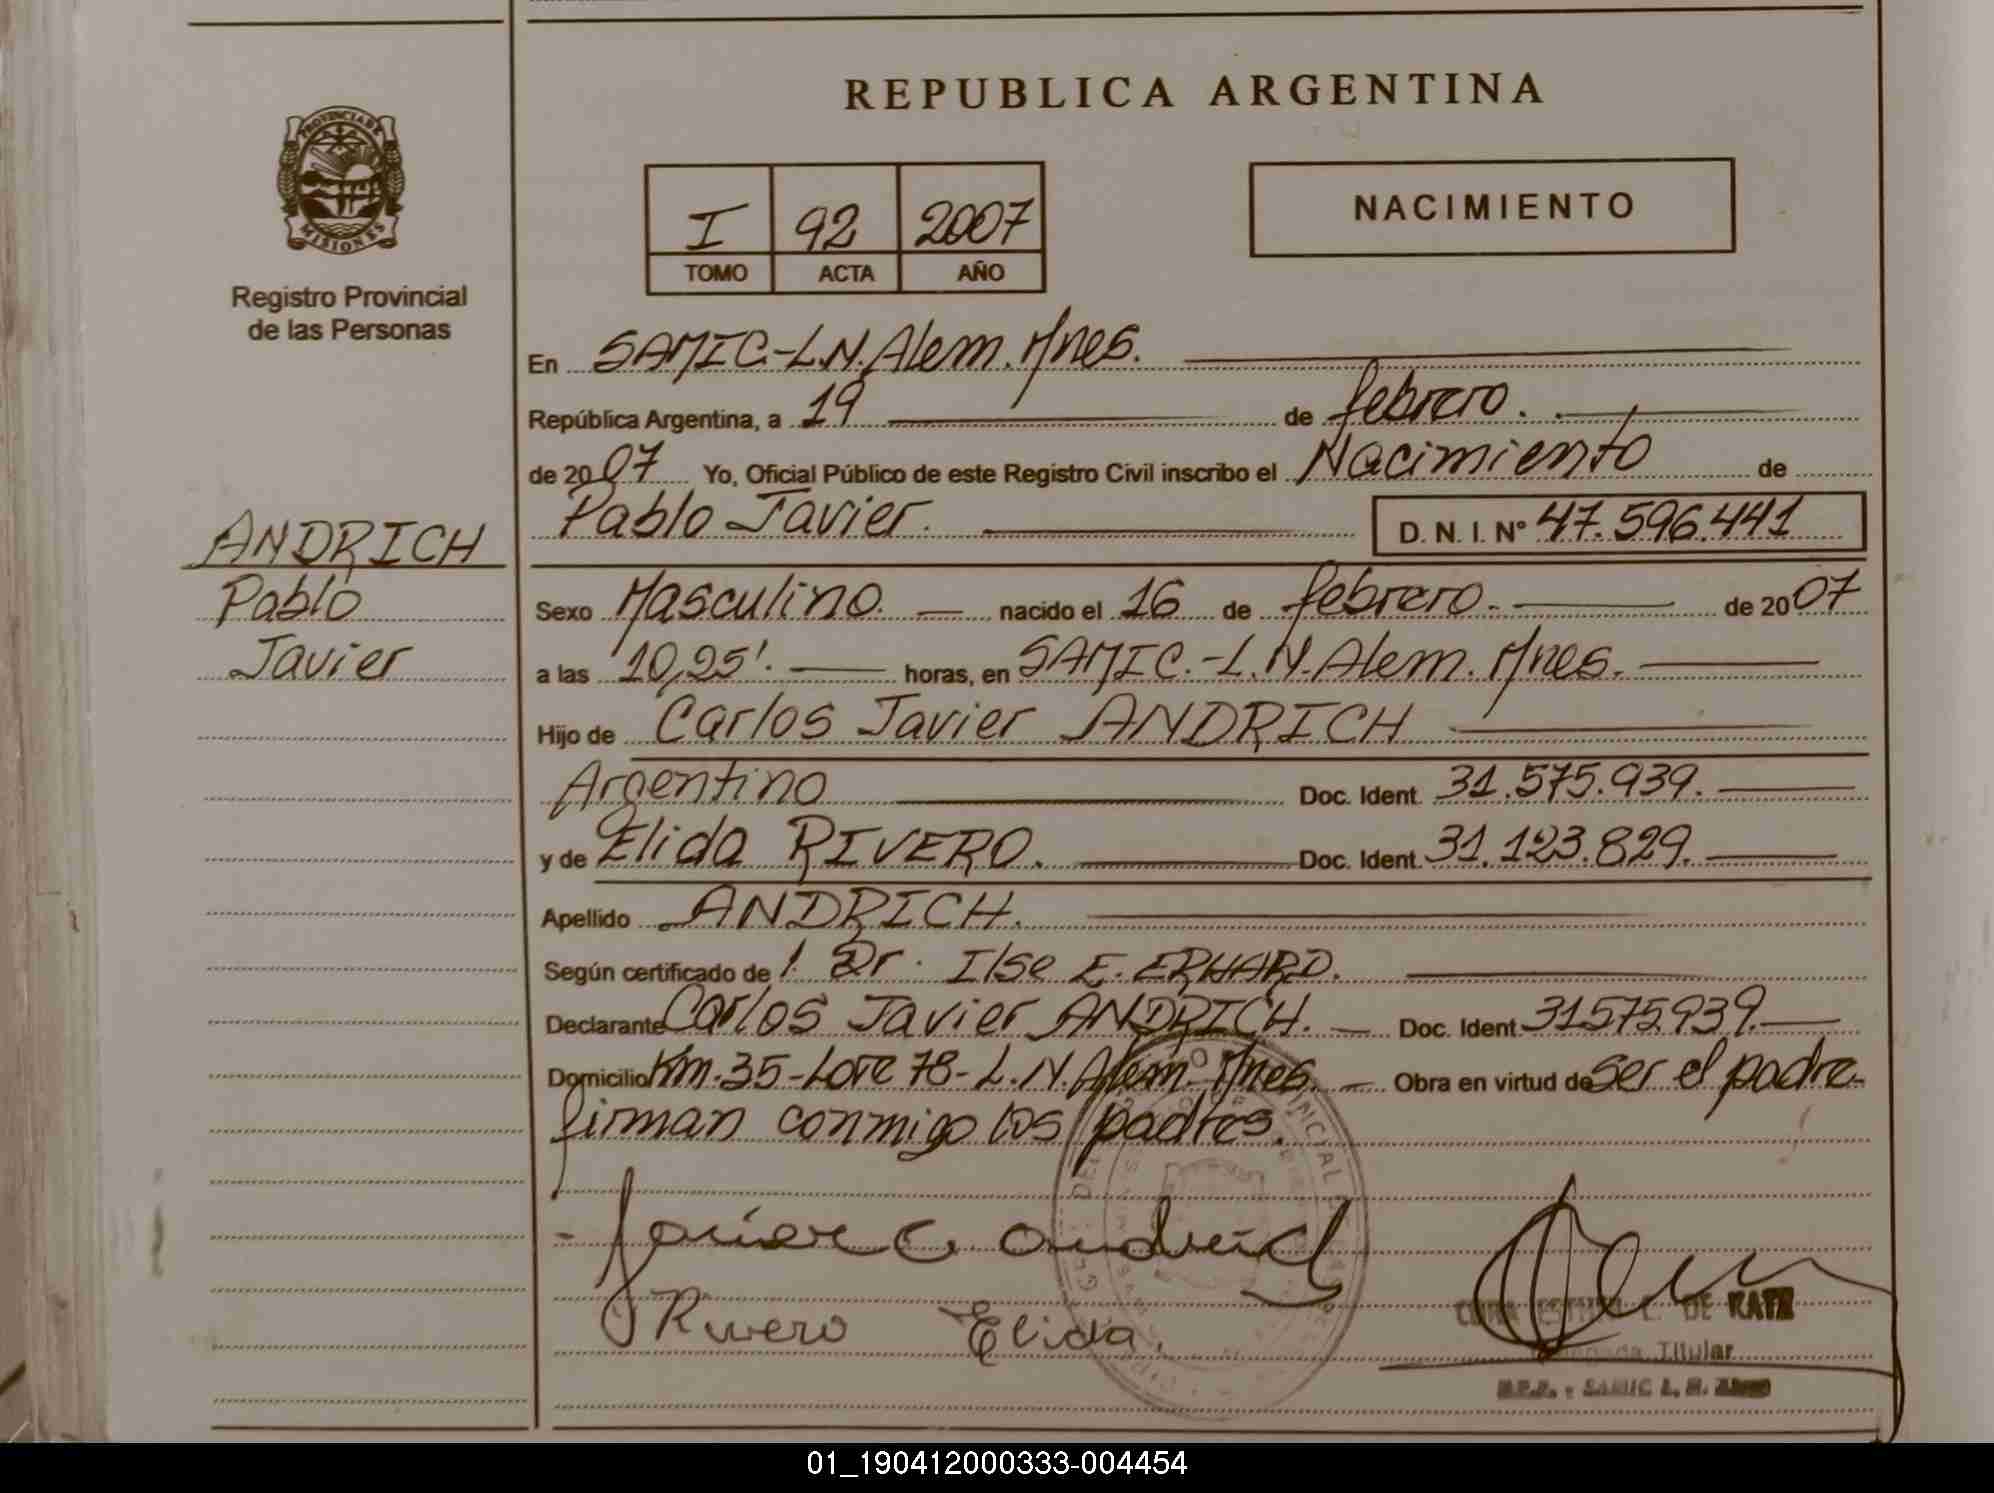 REPUBLICA ARGENTINA
PROVINCIA DE
MISIONES
Registro Provincial
de las Personas
I 92 2007
TOMO ACTA AÑO
NACIMIENTO
En SAMIC.-L.N.Alem.Mnes.
República Argentina, a 19 de febrero.
de 2007 Yo, Oficial Público de este Registro Civil inscribo el Nacimiento de
Pablo Javier. D. N. I. Nº 47.596.441
ANDRICH
Pablo
Javier
Sexo Masculino. nacido el 16 de febrero. de 2007
a las 10,25'. horas, en SAMIC.-L.N.Alem. Mnes.
Hijo de Carlos Javier ANDRICH
Argentino Doc. Ident. 31.575.939.
y de Elida RIVERO. Doc. Ident. 31.123.829.
Apellido ANDRICH.
Según certificado de l. Dr. Ilse E. ERHARD.
Declarante Carlos Javier ANDRICH. Doc. Ident. 31575939.
Domicilio Km.35-Lote 78-L.N.Alem. Mnes. Obra en virtud de ser el padre-
firman conmigo los padres.
Javier C. Andrich
Rivero Elida.
DE KATZ
Titular
SAMIC L. N.
01_190412000333-004454